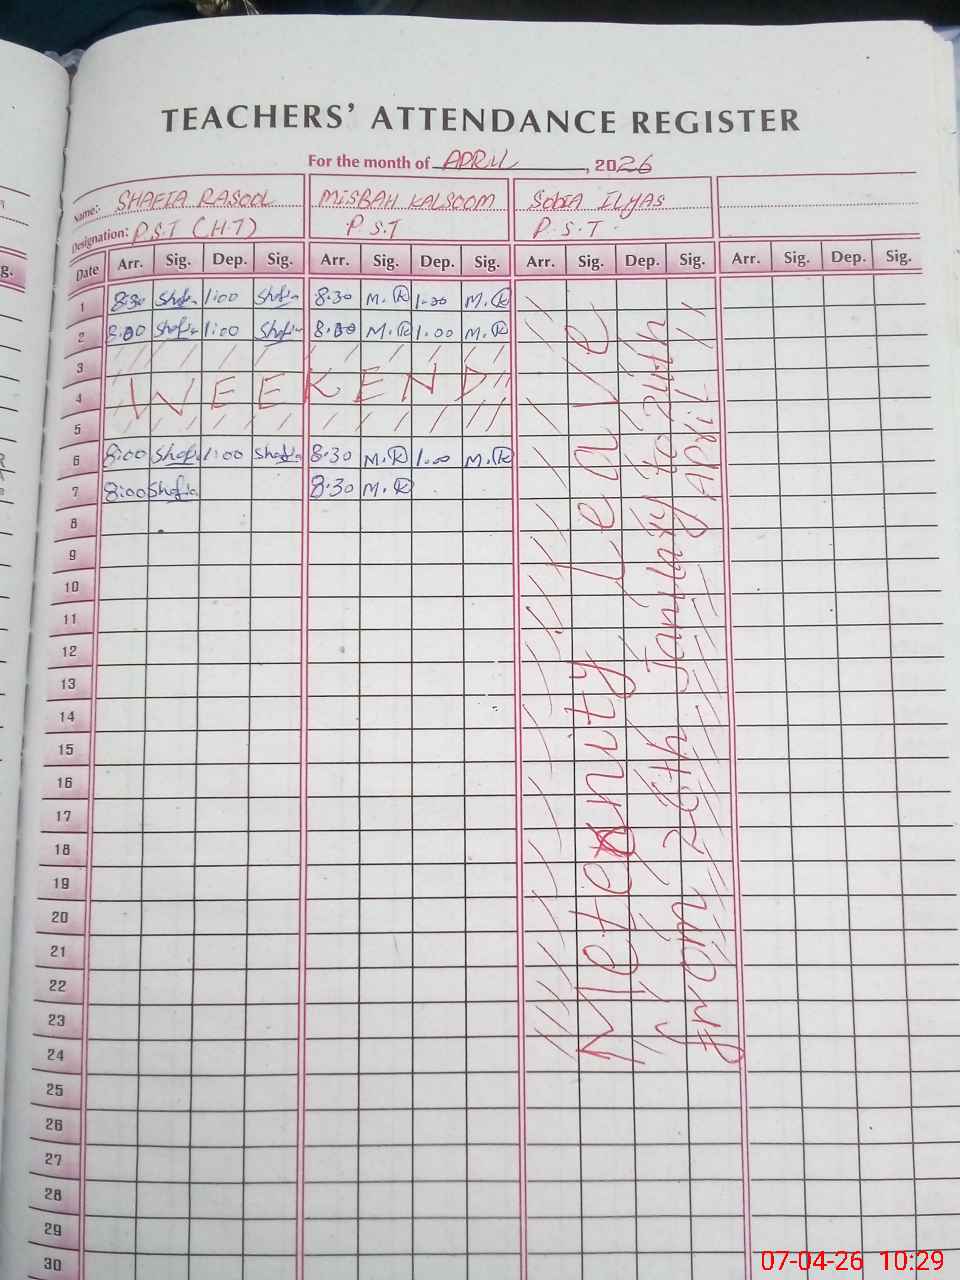 TEACHERS' ATTENDANCE REGISTER
For the month of APRIL, 2026
Name: SHAFIA RASOOL MISBAH KALSOOM SOBIA ILYAS
Designation: P.S.T (H.T) P.S.T P.S.T.
Date Arr. Sig. Dep. Sig. Arr. Sig. Dep. Sig. Arr. Sig. Dep. Sig. Arr. Sig. Dep. Sig.
1 8:30 Shafia 1:00 Shafia 8.30 M.R 1.00 M.R
2 8:00 Shafia 1:00 Shafia 8.30 M.R 1.00 M.R
3
4 WEEKEND
5
6 8:00 Shafia 1:00 Shafia 8.30 M.R 1.00 M.R
7 8:00 Shafia 8.30 M.R
8
9
10
11
12
13
14
15
16
17
18
19
20
21
22
23
24
25
26
27
28
29
30
Meternity Leave
from 26th January to 24th
April
07-04-26 10:29